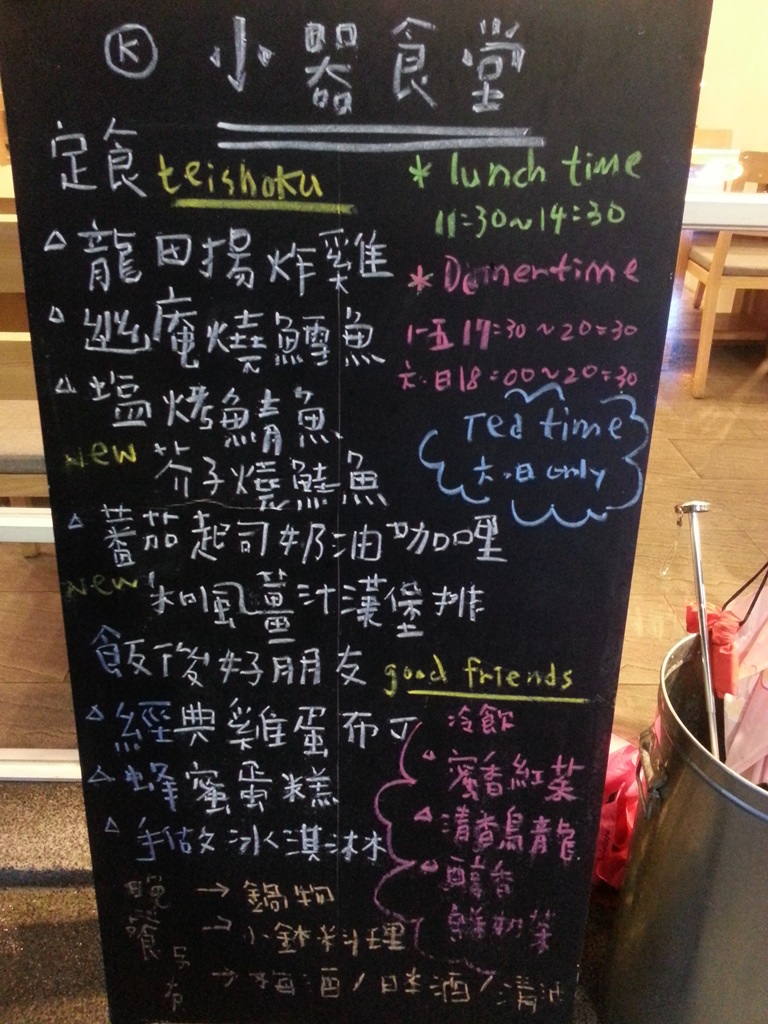 K 小器食堂
定食 teishoku
△龍田揚炸雞
△幽庵燒鱈魚
△塩烤鯖魚
new 芥子燒鮭魚
△蕃茄起司奶油咖哩
new 和風薑汁漢堡排
* lunch time
11:30~14:30
* Dinnertime
1-五 17:30~20:30
六.日 18:00~20:30
Tea time
六.日 only
飯後好朋友 good friends
△經典雞蛋布丁
△蜂蜜蛋糕
△手做冰淇淋
冷飲
△蜜香紅茶
△清香烏龍
△醇香
鮮奶茶
晚餐
另有
→鍋物
→小鉢料理
→梅酒/日本酒/清酒